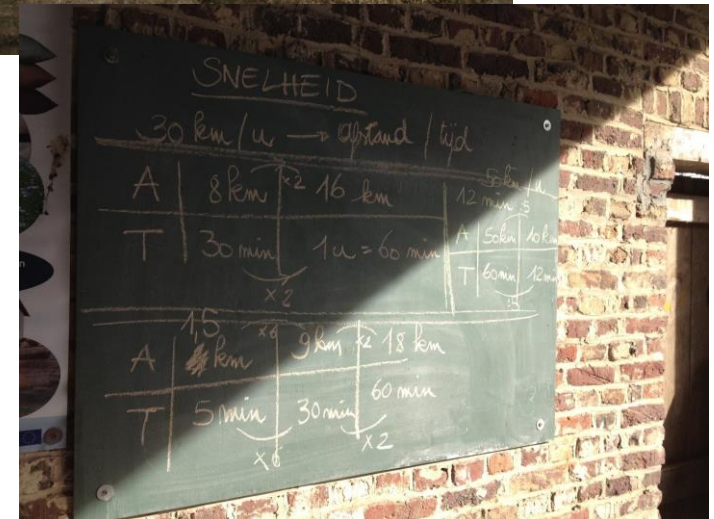 SNELHEID
30 km/u → afstand / tijd
A 8 km x2 16 km
T 30 min 1u = 60 min
x2
50 km/u
12 min :5
A 50 km 10 km
T 60 min 12 min
:5
1,5 x6 x2
A km 9 km 18 km
T 5 min 30 min 60 min
x6 x2